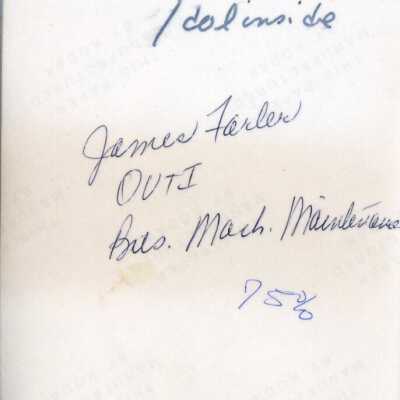 1 dol inside
James Farler
OVTI
Bus. Mach. Maintenance
75%